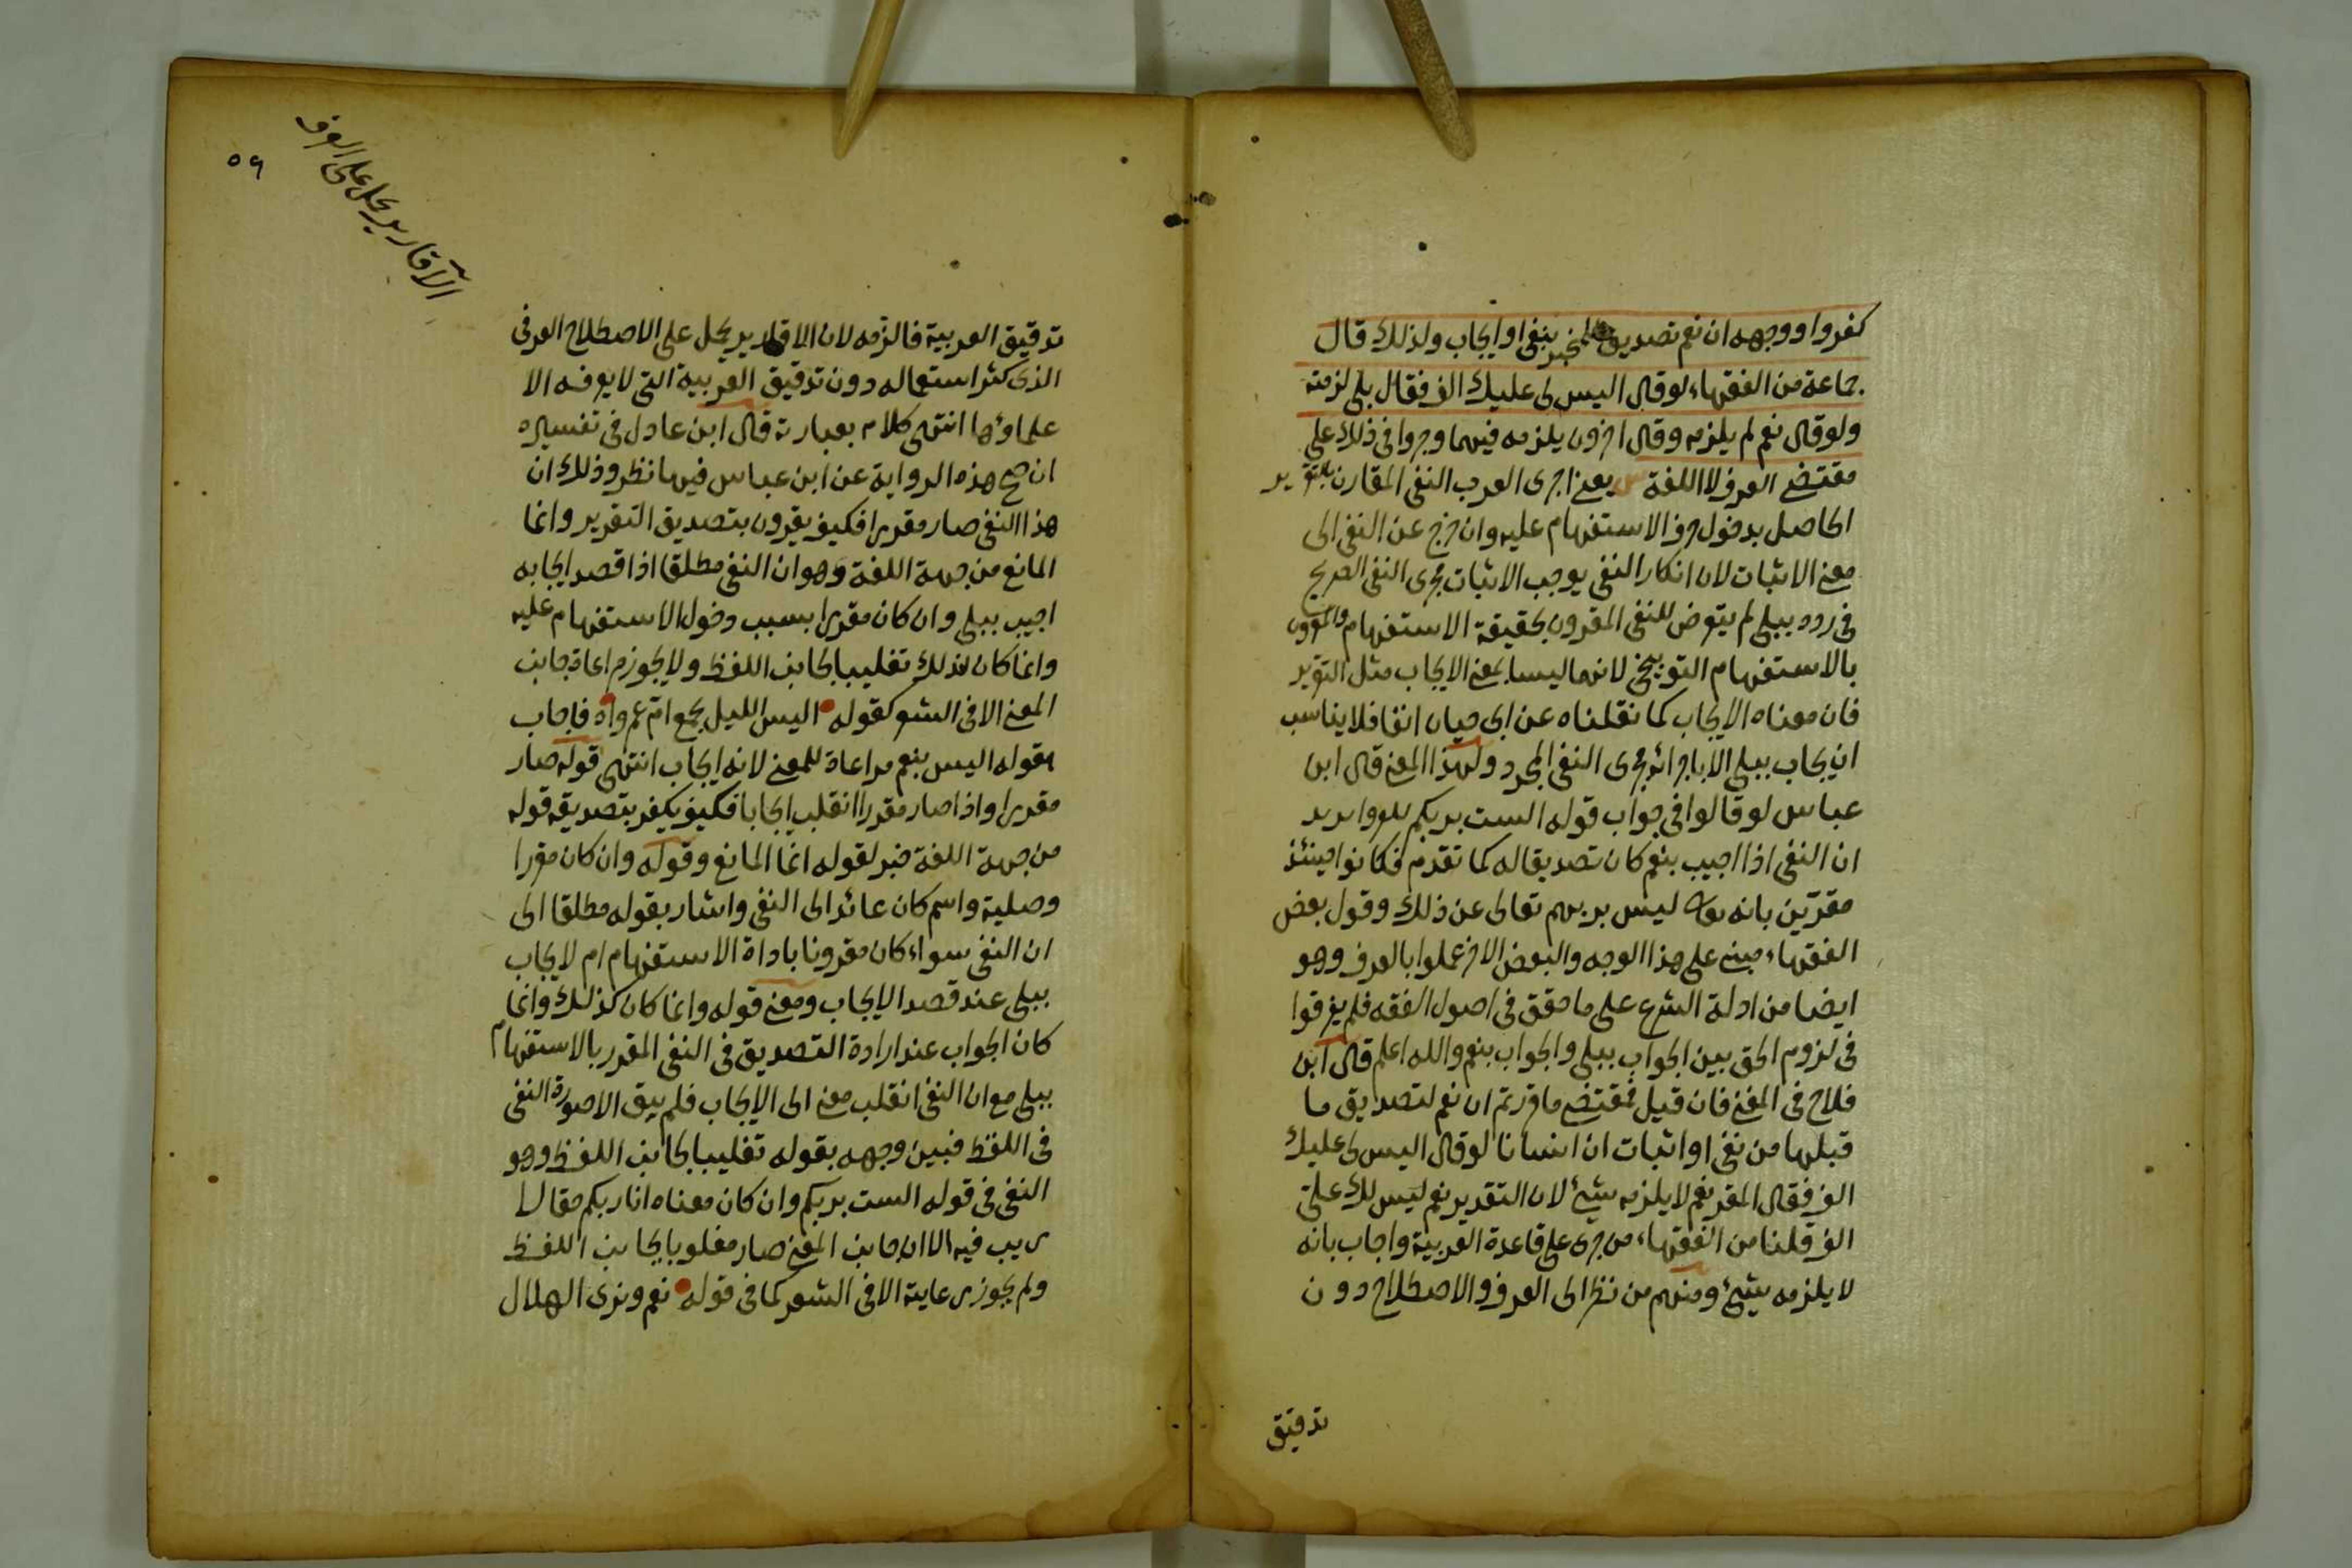 كفروا ووجهه ان نعم تصديق للمخبر بنفى او ايجاب ولذلك قال
جماعة من الفقهاء لو قال اليس لى عليك الف فقال بلى لزمته
ولو قال نعم لم يلزمه وقال اخرون يلزمه فيهما وجروا فى ذلك على
مقتضى العرف لا اللغة يعنى اجرى العرب النفى المقارن بالتقرير
الحاصل بدخول حرف الاستفهام عليه وان خرج عن النفى الى
معنى الاثبات لان انكار النفى يوجب الاثبات مجرى النفى الصريح
فى رده ببلى لم يتعرض للنفى المقرون بحقيقة الاستفهام والمقرون
بالاستفهام التوبيخى لانهما ليسا بمعنى الايجاب مثل التقرير
فان معناه الايجاب كما نقلناه عن ابى حيان انفا فلا يناسب
ان يجاب ببلى الا باجرائه مجرى النفى المجرد ولهذا المعنى قال ابن
عباس لو قالوا فى جواب قوله الست بربكم يريد
ان النفى اذا اجيب بنعم كان تصديقا له كما تقدم فكانوا حينئذ
مقرّين بانه ليس بربهم تعالى عن ذلك وقول بعض
الفقهاء مبنى على هذا الوجه والبعض الاخر عملوا بالعرف وهو
ايضا من ادلة الشرع على ما حقق فى اصول الفقه فلم يفرقوا
فى لزوم الحق بين الجواب ببلى والجواب بنعم والله اعلم قال ابن
فلاح فى المغنى فان قيل فمقتضى ما قررتم ان نعم لتصديق ما
قبلها من نفى او اثبات ان انسانا لو قال اليس لى عليك
الف فقال المقر نعم لا يلزمه شئ لان التقدير نعم ليس لك علىّ
الف قلنا من الفقهاء من جرى على قاعدة العربية واجاب بانه
لا يلزمه شئ ومنهم من نظر الى العرف والاصطلاح دون
تدقيق
٥٦
الآقارير يحمل على العرف
تدقيق العربية فالزمه لان الاقارير يحمل على الاصطلاح العرفى
الذى كثر استعماله دون تدقيق العربية التى لا يعرفه الا
علماؤها انتهى كلام بعبارته قال ابن عادل فى تفسيره
ان صح هذه الرواية عن ابن عباس فيها نظر وذلك ان
هذا النفى صار مقررا فكيف يقرون بتصديق التقرير وانما
المانع من جهة اللغة وهو ان النفى مطلقا اذا قصد ايجابه
اجيب ببلى وان كان مقررا بسبب دخول الاستفهام عليه
وانما كان كذلك تغليبا لجانب اللفظ ولا يجوز مراعاة جانب
المعنى الا فى الشعر كقوله اليس الليل يجمع ام عمرو اه فاجاب
بقوله اليس بنعم مراعاة للمعنى لانه ايجاب انتهى قوله صار
مقررا واذا صار مقررا انقلب ايجابا فكيف يكفر بتصديقه قوله
من جهة اللغة خبر لقوله انما المانع وقوله وان كان مقررا
وصلية واسم كان عائد الى النفى واشار بقوله مطلقا الى
ان النفى سواء كان مقرونا باداة الاستفهام ام لا يجاب
ببلى عند قصد الايجاب ومعنى قوله وانما كان كذلك وانما
كان الجواب عند ارادة التصديق فى النفى المقدر بالاستفهام
ببلى مع ان النفى انقلب معنى الى الايجاب فلم يبق الا صورة النفى
فى اللفظ فبين وجهه بقوله تغليبا لجانب اللفظ وهو
النفى فى قوله الست بربكم وان كان معناه انا ربكم حقا لا
ريب فيه الا ان جانب المعنى صار مغلوبا بجانب اللفظ
ولم يجوز رعايته الا فى الشعر كما فى قوله نعم ونرى الهلال